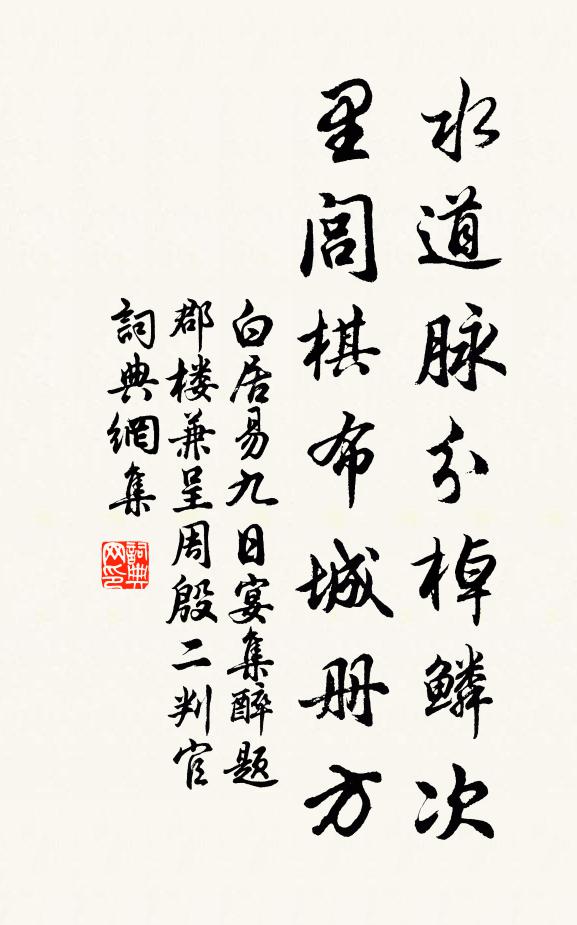 水道脉分棹鳞次
里闾棋布城册方
白居易九日宴集醉题
郡楼兼呈周殷二判官
詞典網集
詞典网印